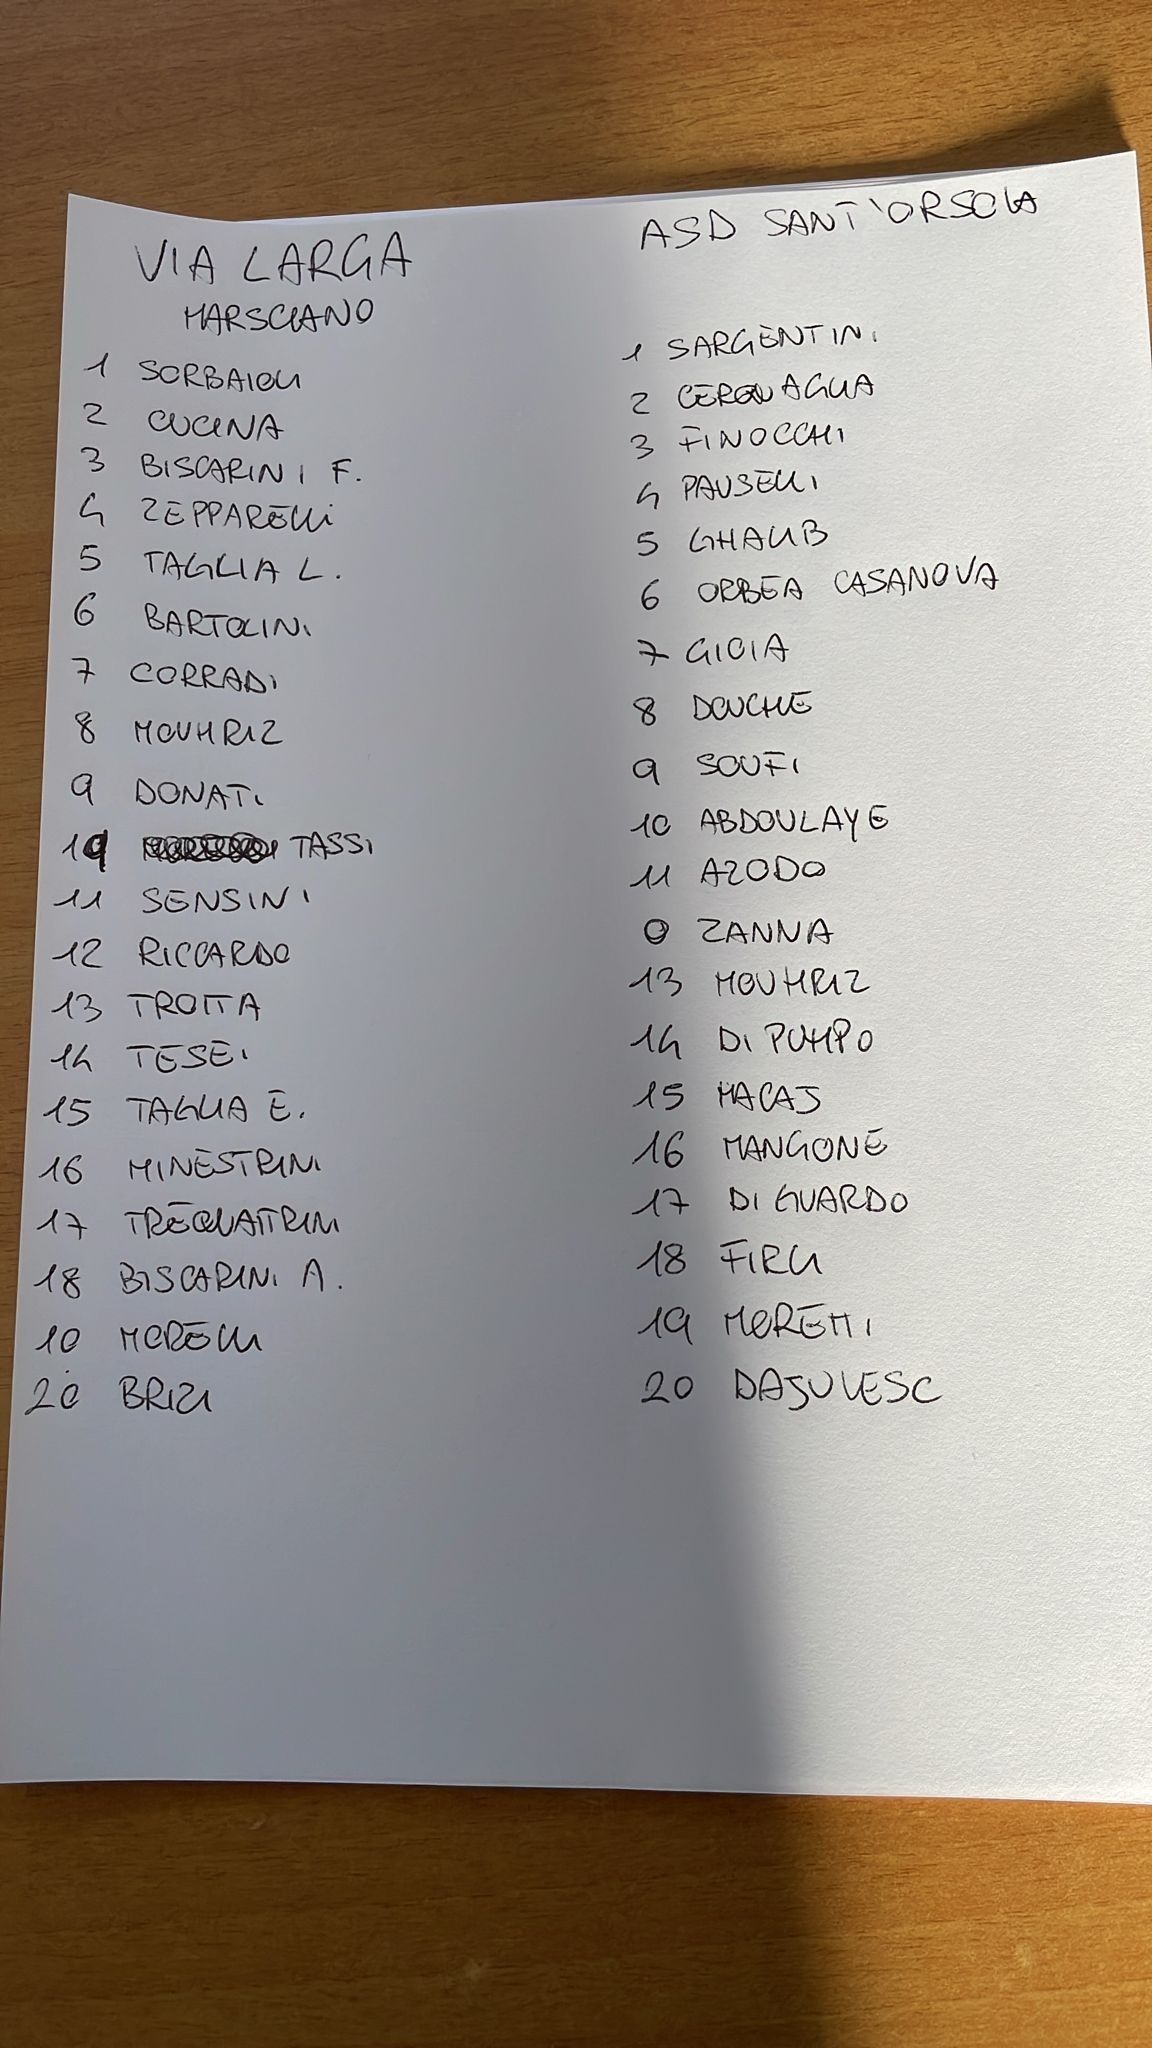 VIA LARGA
MARSCIANO
1 SORBAIOLI
2 CUCINA
3 BISCARINI F.
4 ZEPPARELLI
5 TAGLIA L.
6 BARTOLINI
7 CORRADI
8 MOUHRIZ
9 DONATI
19 TASSI
11 SENSINI
12 RICCARDO
13 TROTTA
14 TESEI
15 TAGLIA E.
16 MINESTRINI
17 TREQUATTRINI
18 BISCARINI A.
10 MORELLI
20 BRIZI
ASD SANT'ORSOLA
1 SARGENTINI
2 CERQUAGLIA
3 FINOCCHI
4 PAUSELLI
5 GHALIB
6 ORBEA CASANOVA
7 GIOIA
8 DOUCHE
9 SOUFI
10 ABDOULAYE
11 AZODO
0 ZANNA
13 MOUHRIZ
14 DI PUMPO
15 MACAJ
16 MANGONE
17 DI GUARDO
18 FIRLI
19 MOREMI
20 DAJULESC